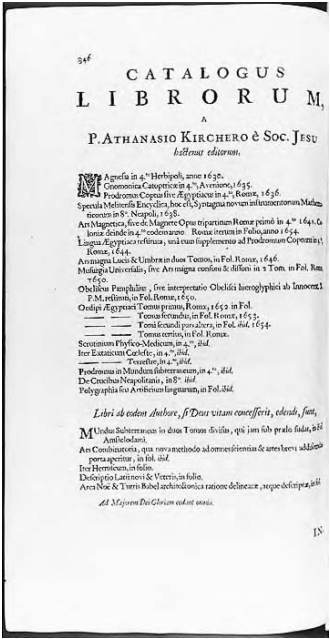 346
CATALOGUS
LIBRORUM,
A
P. ATHANASIO KIRCHERO è SOC. JESU
hactenus editorum.
MAgnesia in 4.to Herbipoli, anno 1630.
Gnomonica Catoptricæ in 4.to, Avenione, 1635.
Prodromus Coptus sive Ægyptiacus in 4.to, Romæ, 1636.
Specula Melitensis Encyclica, hoc est, Syntagma novum instrumentorum Mathe-
ticorum in 8º. Neapoli, 1638.
Ars Magnetica, sive de Magnete Opus tripartitum Romæ primò in 4.to 1641. Co-
loniæ deinde in 4.to eodem anno. Romæ iterum in Folio, anno 1654.
Lingua Ægyptiaca restituta, unà cum supplemento ad Prodromum Coptum in 4.to,
Romæ, 1644.
Ars magna Lucis & Umbræ in duos Tomos, in Fol. Romæ, 1646.
Musurgia Universalis, sive Ars magna consoni & dissoni in 2 Tom. in Fol. Romæ,
1650.
Obeliscus Pamphilius, sive interpretatio Obelisci hieroglyphici ab Innocent. X
P.M. restituti, in Fol. Romæ, 1650.
Oedipi Ægyptiaci Tomus primus, Romæ, 1652 in Fol.
—— —— Tomus secundus, in Fol. Romæ, 1653.
—— —— Tomi secundi pars altera, in Fol. ibid. 1654.
—— —— Tomus tertius, in Fol. Romæ.
Scrutinium Physico-Medicum, in 4.to, ibid.
Iter Extaticum Cœleste, in 4.to, ibid.
—— —— Terrestre, in 4.to, ibid.
Prodromus in Mundum subterraneum, in 4.to, ibid.
De Crucibus Neapolitanis, in 8º. ibid.
Polygraphia seu Artificium linguarum, in Fol. ibid.
Libri ab eodem Authore, si Deus vitam concesserit, edendi, sunt,
MUndus Subterraneus in duos Tomos divisus, qui jam sub prælo sudat, in Fol.
Amstelodami.
Ars Combinatoria, qua nova methodo ad omnes scientias & artes brevi addiscendas
porta aperitur, in fol. ibid.
Iter Hetruscum, in folio.
Descriptio Latii novi & Veteris, in folio.
Arca Noë & Turris Babel architectonica ratione delineatæ, atque descriptæ, in fol.
Ad Majorem Dei Gloriam cedant omnia.
IN-